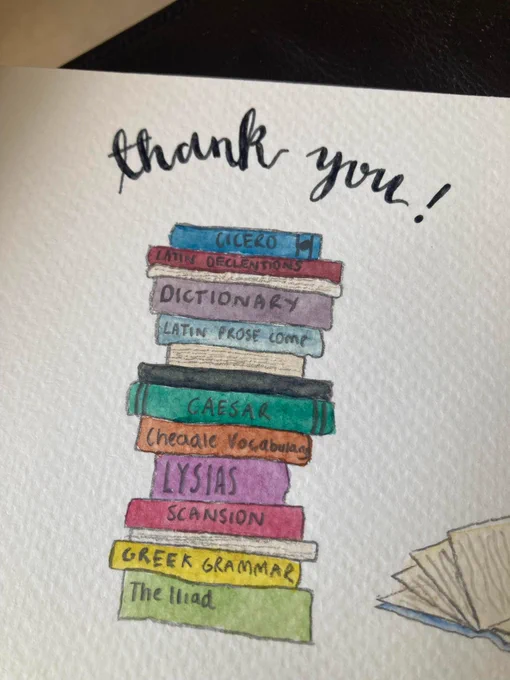 thank you!
CICERO
LATIN DECLENTIONS
DICTIONARY
LATIN PROSE COMP
CAESAR
Cheadle Vocabulary
LYSIAS
SCANSION
GREEK GRAMMAR
The Iliad